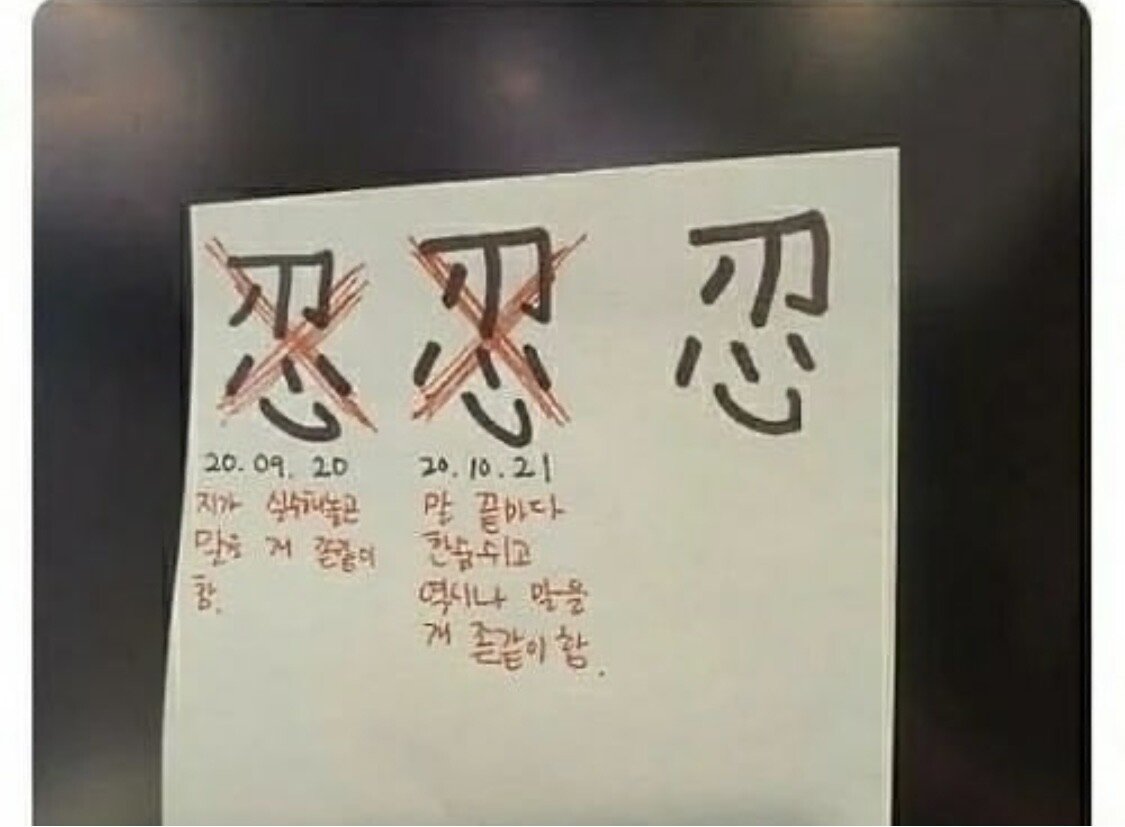 忍 忍 忍
20.09.20
지가 실수해놓곤
말을 개 좉같이
함.
20.10.21
말 끝마다
한숨쉬고
역시나 말을
개 좉같이 함.